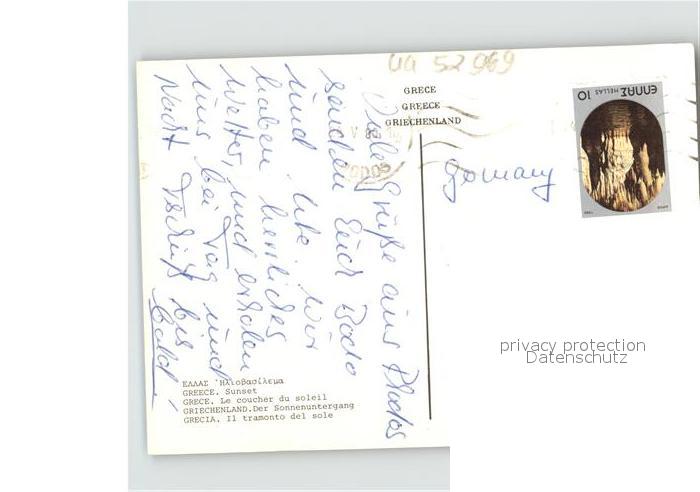 ua 52969
GRECE
GREECE
GRIECHENLAND
ΕΛΛΑΣ HELLAS 10
Viele Grüße aus Rhodos
senden Euch Bodo
und Ute. Wir
haben herrliches
Wetter, und erholen
uns bei Tag und
Nacht. Tschüß bis
bald!
Germany
privacy protection
Datenschutz
ΕΛΛΑΣ Ἡλιοβασίλεμα
GREECE. Sunset
GRECE. Le coucher du soleil
GRIECHENLAND.Der Sonnenuntergang
GRECIA. Il tramonto del sole